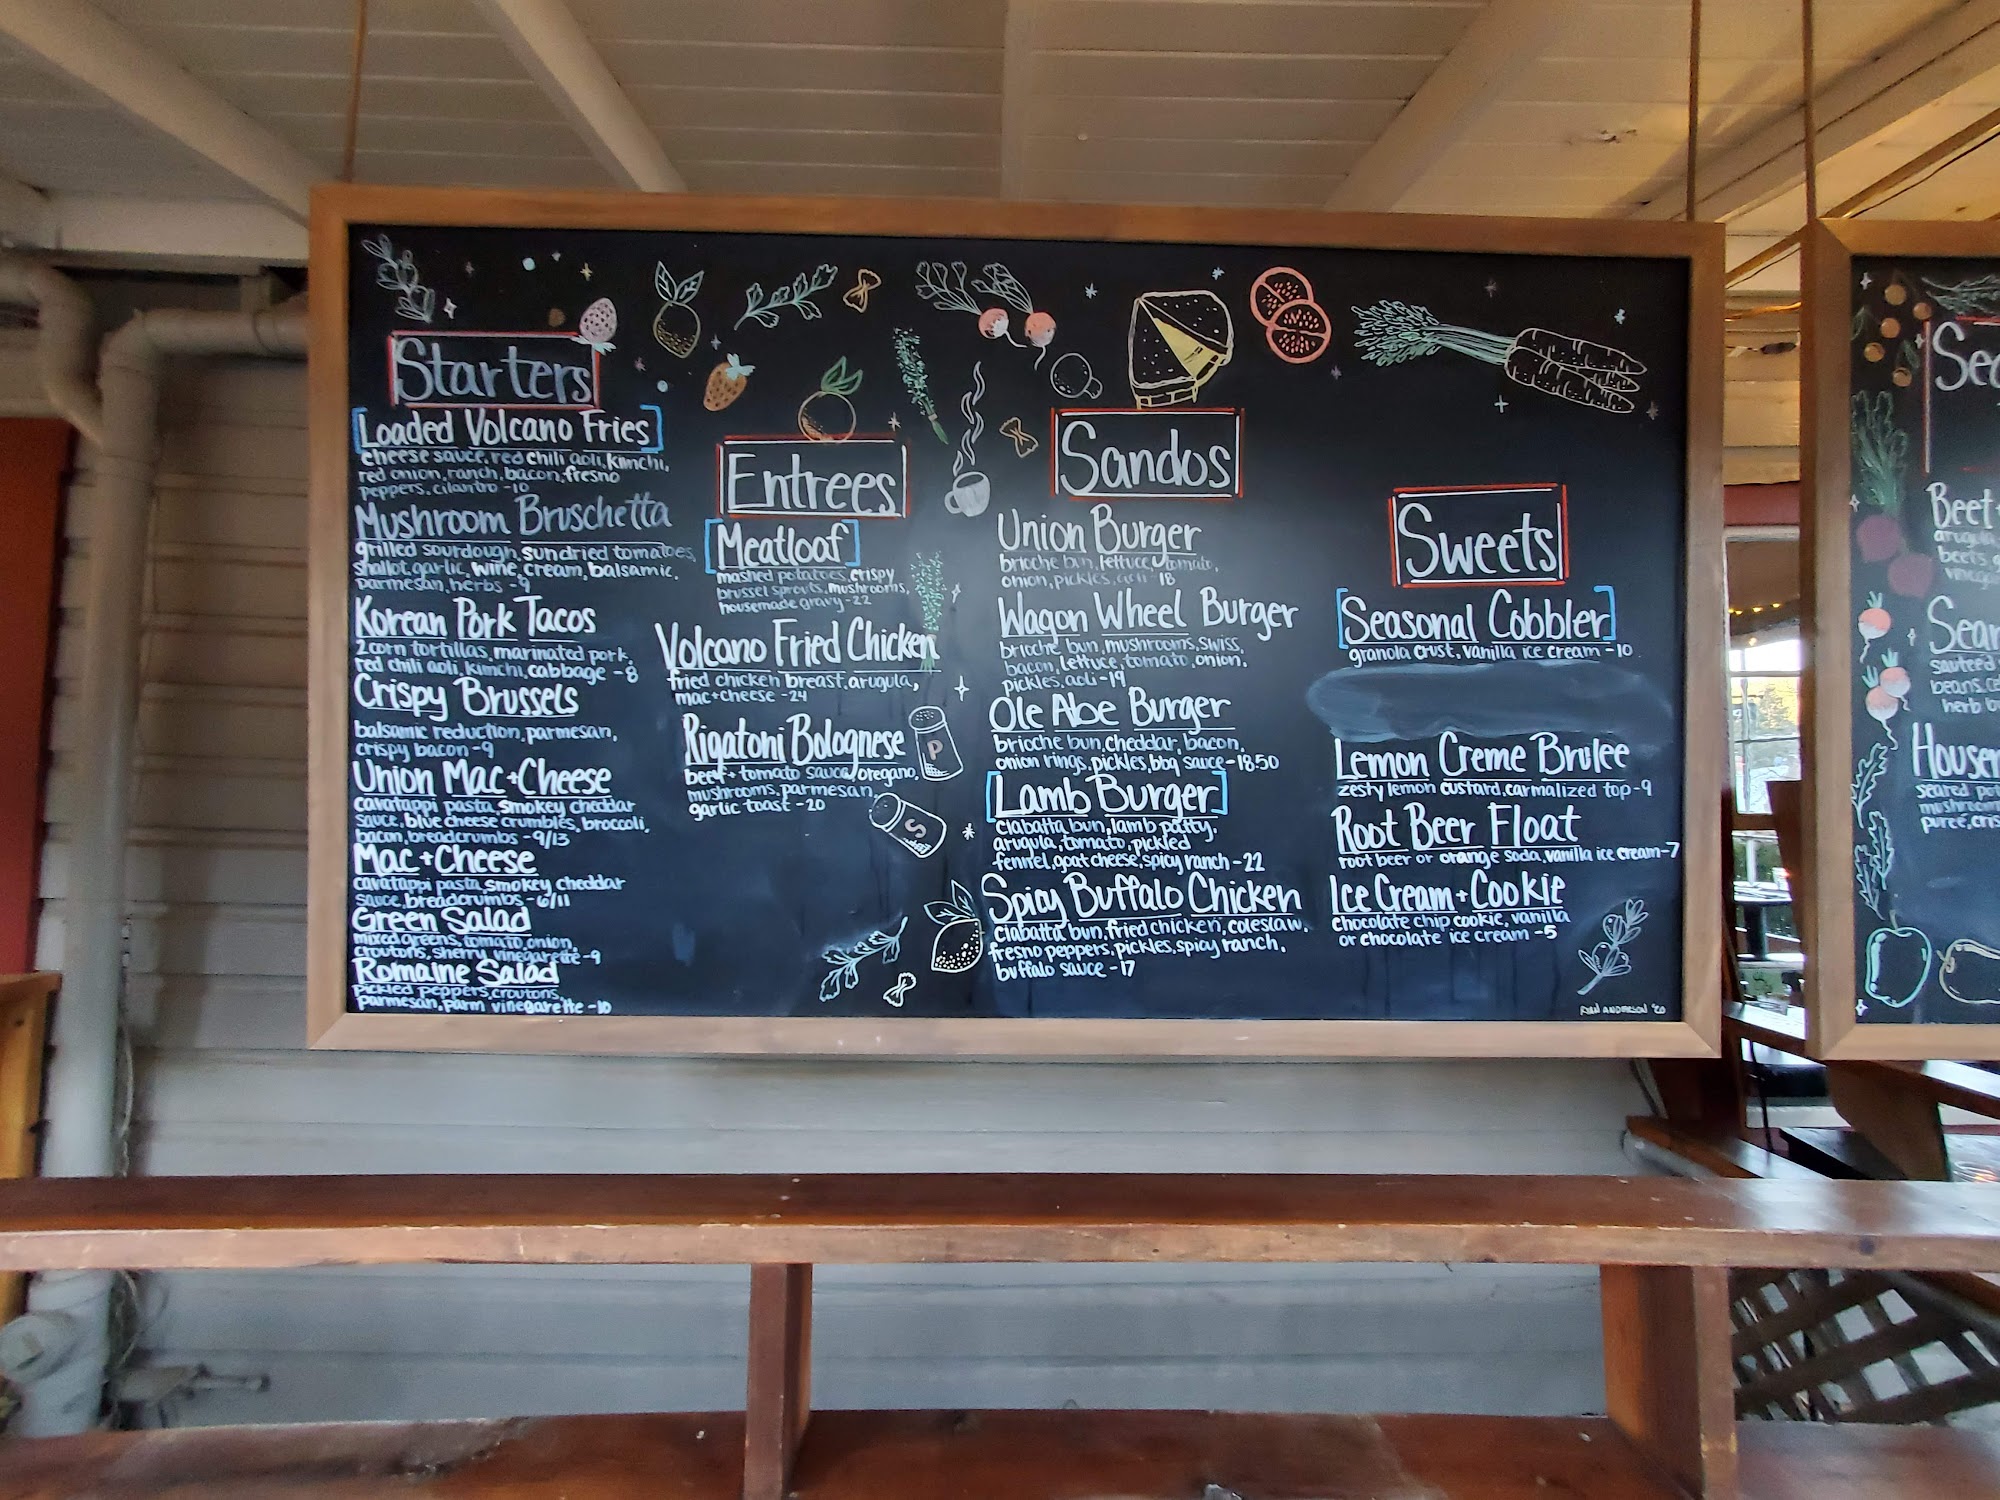 Starters
Loaded Volcano Fries
cheese sauce, red chili aoli, kimchi,
red onion, ranch, bacon, fresno
peppers, cilantro -10
Mushroom Bruschetta
grilled sourdough, sundried tomatoes,
shallot, garlic, wine, cream, balsamic,
parmesan, herbs -9
Korean Pork Tacos
2 corn tortillas, marinated pork,
red chili aoli, kimchi, cabbage -8
Crispy Brussels
balsamic reduction, parmesan,
crispy bacon -9
Union Mac+Cheese
cavatappi pasta, smokey cheddar
sauce, blue cheese crumbles, broccoli,
bacon, breadcrumbs -9/13
Mac+Cheese
cavatappi pasta, smokey cheddar
sauce, breadcrumbs -6/11
Green Salad
mixed greens, tomato, onion,
croutons, sherry vinegarette -9
Romaine Salad
pickled peppers, croutons,
parmesan, parm vinegarette -10
Entrees
Meatloaf
mashed potatoes, crispy
brussel sprouts, mushrooms,
housemade gravy -22
Volcano Fried Chicken
fried chicken breast, arugula,
mac+cheese -24
Rigatoni Bolognese
beef + tomato sauce, oregano,
mushrooms, parmesan,
garlic toast -20
P
S
Sandos
Union Burger
brioche bun, lettuce, tomato,
onion, pickles, aoli -18
Wagon Wheel Burger
brioche bun, mushrooms, swiss,
bacon, lettuce, tomato, onion,
pickles, aoli -19
Ole Abe Burger
brioche bun, cheddar, bacon,
onion rings, pickles, bbq sauce -18.50
Lamb Burger
ciabatta bun, lamb patty,
arugula, tomato, pickled
fennel, goat cheese, spicy ranch -22
Spicy Buffalo Chicken
ciabatta bun, fried chicken, coleslaw,
fresno peppers, pickles, spicy ranch,
buffalo sauce -17
Sweets
Seasonal Cobbler
granola crust, vanilla ice cream -10
Lemon Creme Brulee
zesty lemon custard, carmalized top -9
Root Beer Float
root beer or orange soda, vanilla ice cream -7
Ice Cream + Cookie
chocolate chip cookie, vanilla
or chocolate ice cream -5
RYAN ANDERSON '20
Beet
arugula
beets
sauteed
beans, ce
herb bu
seared
mushroom
puree, cris